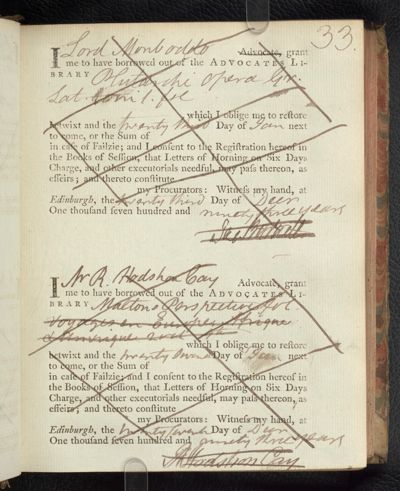 33.
I Lord Monboddo Advocate, grant
me to have borrowed out of the ADVOCATES LI-
BRARY Plutarchi opera Gr.
Lat. tom. 1. fol
which I oblige me to restore
betwixt and the twenty third Day of Jan next
to come, or the Sum of
in case of Failzie; and I consent to the Registration hereof in
the Books of Session, that Letters of Horning on Six Days
Charge, and other executorials needful, may pass thereon, as
effeirs; and thereto constitute
my Procurators: Witness my hand, at
Edinburgh, the twenty third Day of Decr
One thousand seven hundred and ninety three years
I Mr R. Hodshon Cay Advocate, grant
me to have borrowed out of the ADVOCATES LI-
BRARY Maltons Perspective fol
Voyages en Europe, Afrique
which I oblige me to restore
betwixt and the Day of Jan next
to come, or the Sum of
in case of Failzie; and I consent to the Registration hereof in
the Books of Session, that Letters of Horning on Six Days
Charge, and other executorials needful, may pass thereon, as
effeirs; and thereto constitute
my Procurators: Witness my hand, at
Edinburgh, the Day of Decr
One thousand seven hundred and ninety three years
R Hodshon Cay